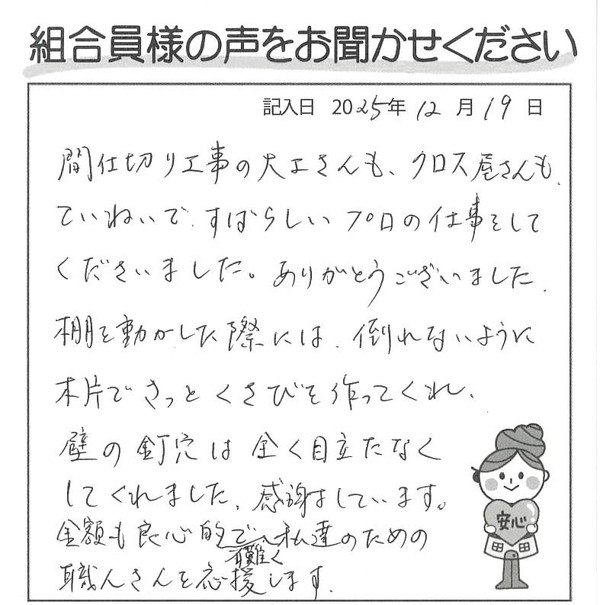 組合員様の声をお聞かせください
記入日 2025年12月19日
間仕切り工事の大工さんも、クロス屋さんも、
ていねいで、すばらしいプロの仕事をして
くださいました。ありがとうございました。
棚を動かした際には、倒れないように
木片でさっとくさびを作ってくれ、
壁の釘穴は全く目立たなく
してくれました。感謝しています。
金額も良心的で、有難く私達のための
職人さんを応援します。
安心